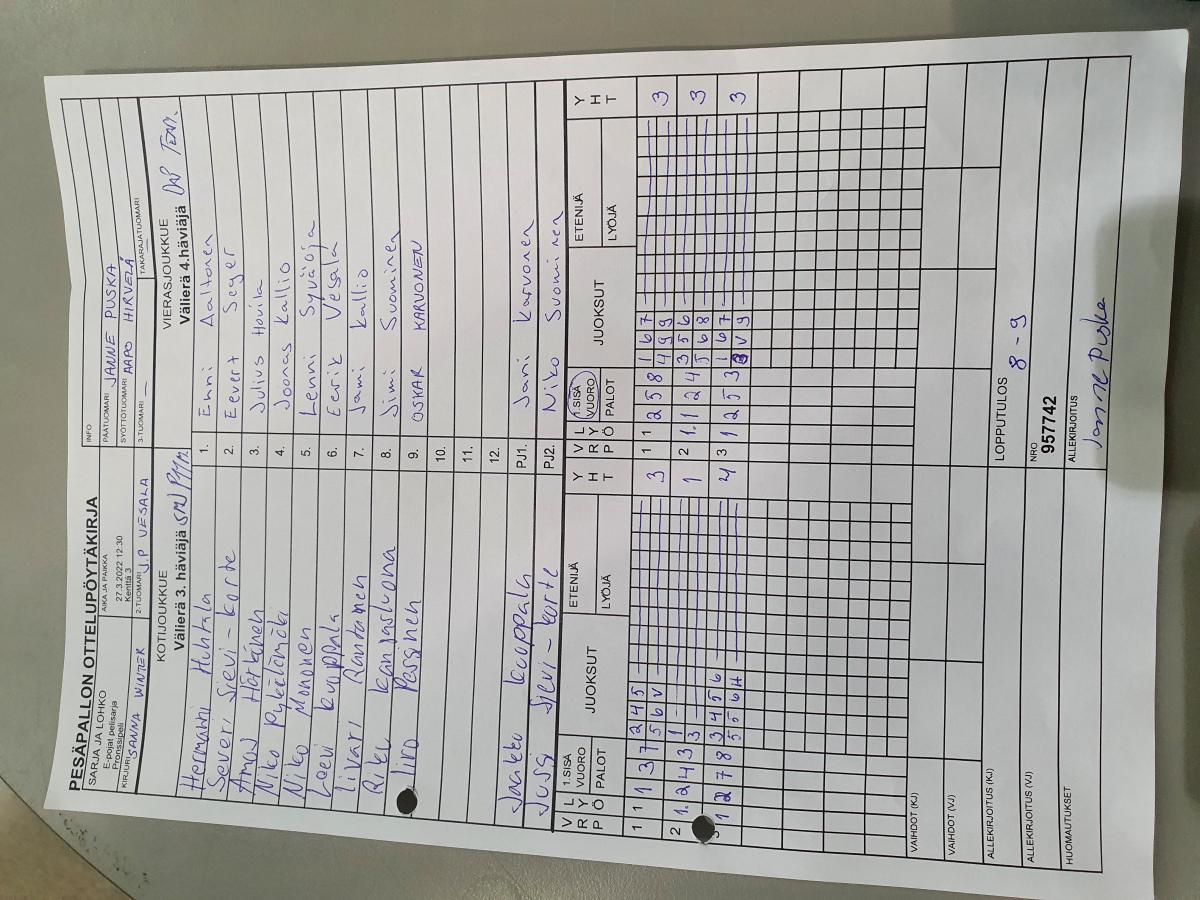 PESÄPALLON OTTELUPÖYTÄKIRJA
SARJA JA LOHKO
E-pojat pelisarja
Pronssipeli
AIKA JA PAIKKA
27.3.2022 12:30
Kenttä 3
INFO
PÄÄTUOMARI JANNE PUSKA
SYÖTTÖTUOMARI AAPO HIRVELÄ
KIRJURI SANNA WINTER
2-TUOMARI J.P VESALA
3-TUOMARI —
TAKARAJATUOMARI —
KOTIJOUKKUE
Välierä 3. häviäjä
VIERASJOUKKUE
Välierä 4.häviäjä
Hermanni Huhtala 1. Emni Aaltonen
Severi Sievi-Korte 2. Eevert Seger
Härkönen 3. Julius Hovila
Niko Pykäämäki 4. Joonas Kallio
Niko Mononen 5. Lenni Syväoja
Leevi Kuoppala 6. Eerik Vesala
Iivari Rantanen 7. Jami Kallio
Riku Kangasluoma 8. Simi Suominen
Iiro Passinen 9. OSKAR KARVONEN
10.
11.
12.
Jaakko Kuoppala PJ1. Jani Karvonen
Jussi Sievi-Korte PJ2. Niko Suominen
V R P L Y Ö 1.SISÄ VUORO PALOT JUOKSUT ETENIJÄ LYÖJÄ Y H T
V R P L Y Ö 1.SISÄ VUORO PALOT JUOKSUT ETENIJÄ LYÖJÄ Y H T
1 1 1 3 7 2 4 5 3 1 1 2 5 8 1 6 7 3
5 6 V 4 9 9
2 1. 2 4 3 1 1 2 1. 1 2 4 3 5 6 3
3 3 5 6 8
1 2 7 8 3 4 5 6 4 3 1 2 5 3 1 6 7 3
5 5 6 H V 9
VAIHDOT (KJ)
VAIHDOT (VJ)
ALLEKIRJOITUS (KJ)
LOPPUTULOS
8 - 9
ALLEKIRJOITUS (VJ)
NRO
957742
HUOMAUTUKSET
ALLEKIRJOITUS
Janne Puska